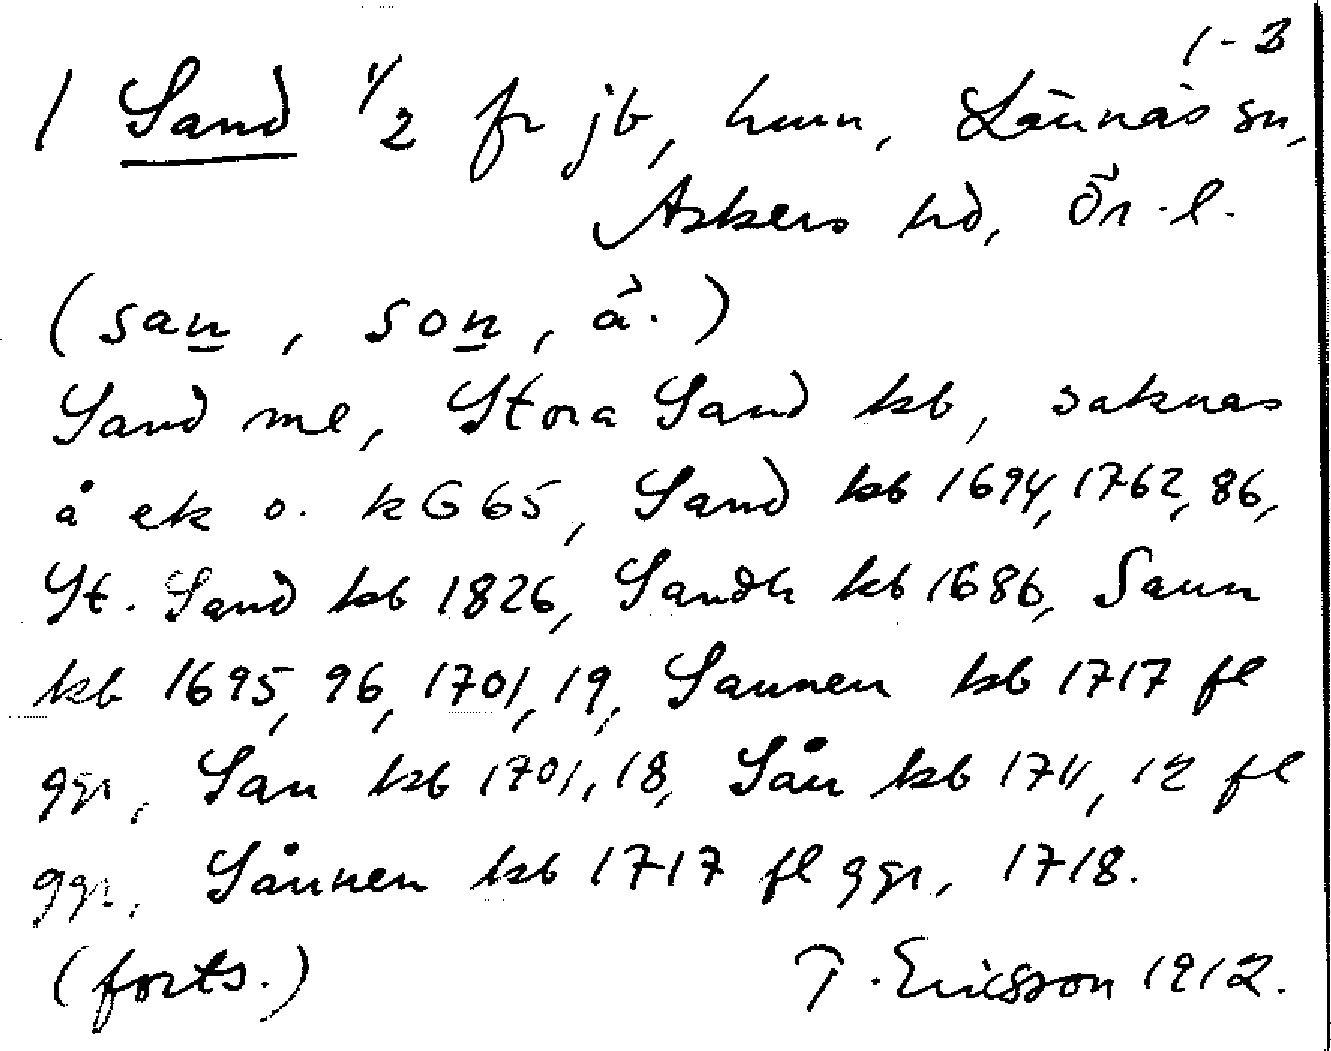 1-3
1 Sand 1/2 fr jb, hmn, Lännäs sn,
Askers hd, Ör.l.
(san, son, å.)
Sand me, Stora Sand kb, saknas
å ek o. kG65, Sand kb 1694, 1762, 86,
St. Sand kb 1826, Sandh kb 1686, Saun
kb 1695, 96, 1701, 19, Saunen kb 1717 fl
ggr, San kb 1701, 18, Sån kb 1711, 12 fl
ggr, Sånnen kb 1717 fl ggr, 1718.
(forts.) T. Ericsson 1912.